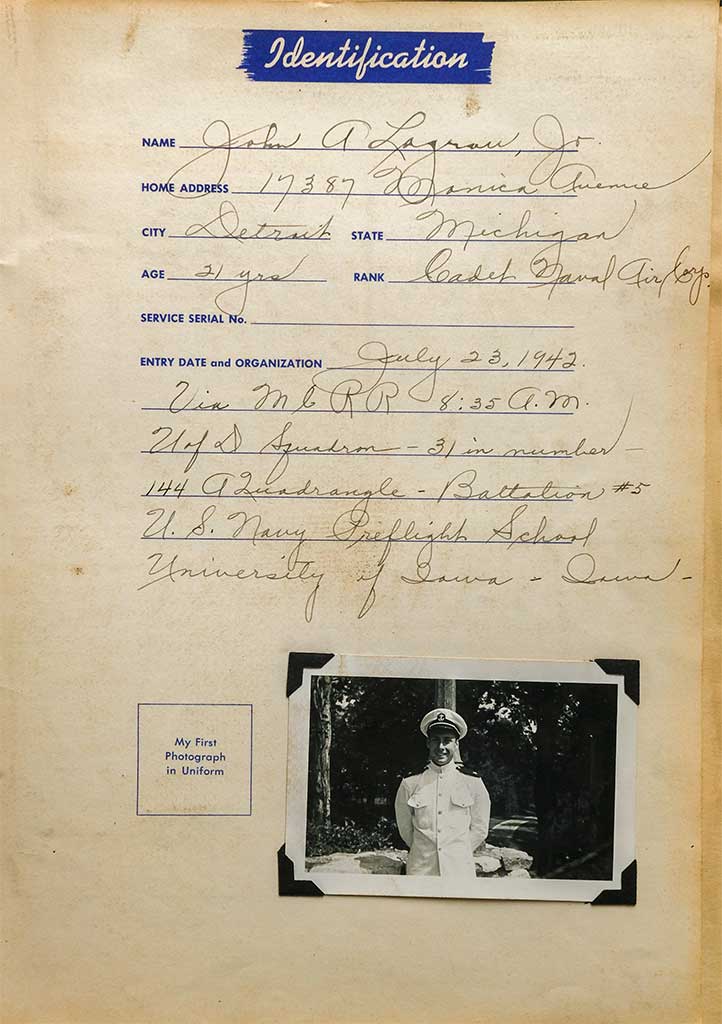 Identification
NAME John A Lagrow, Jr.
HOME ADDRESS 17387 Monica Avenue
CITY Detroit STATE Michigan
AGE 21 yrs RANK Cadet Naval Air Corp.
SERVICE SERIAL No.
ENTRY DATE and ORGANIZATION July 23, 1942.
Via M C R R 8:35 A.M.
U of D Squadron - 31 in number -
144 A Quadrangle - Battalion #5
U. S. Navy Preflight School
University of Iowa - Iowa -
My First
Photograph
in Uniform